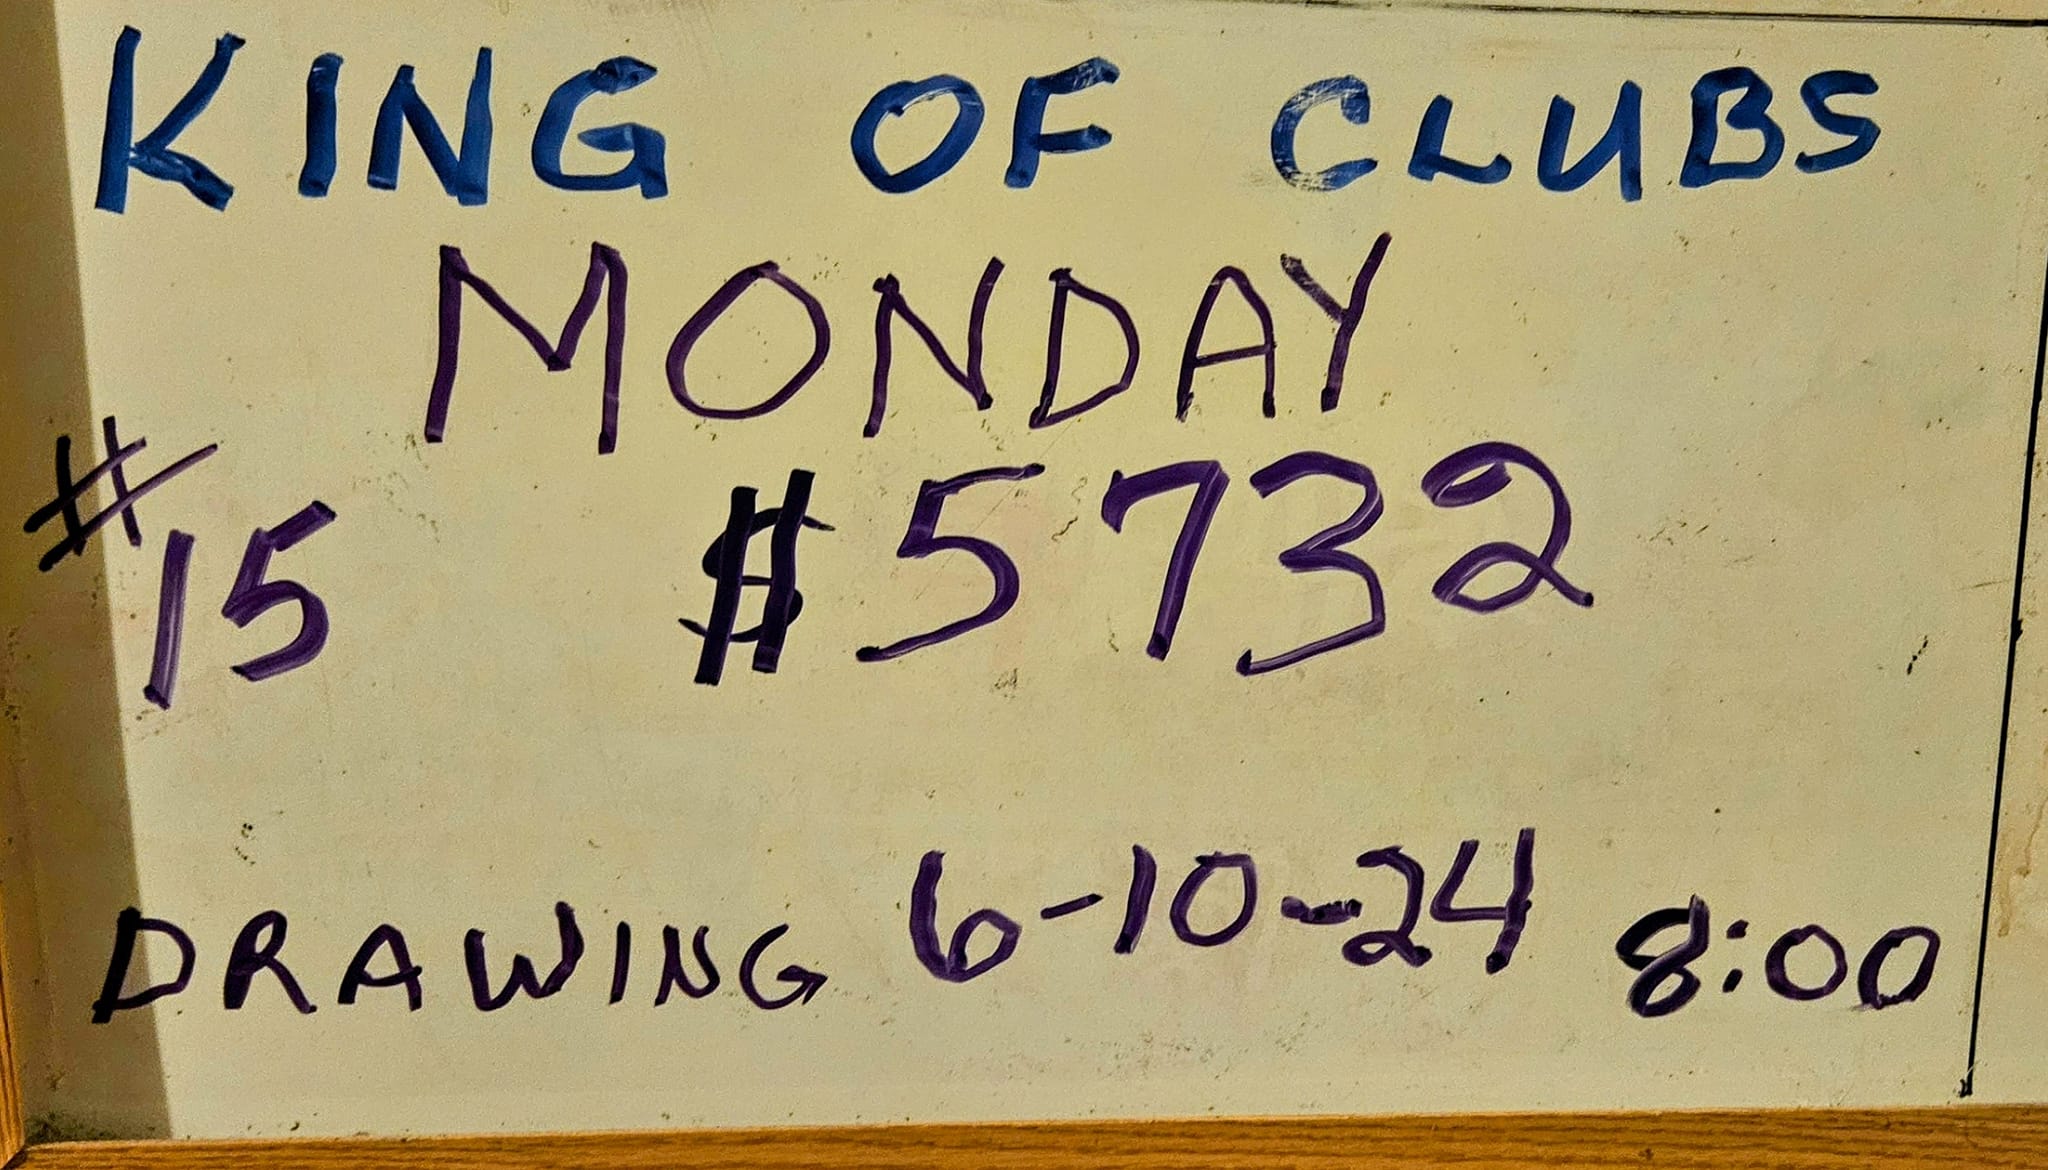 KING OF CLUBS
MONDAY
#15 $5732
DRAWING 6-10-24 8:00